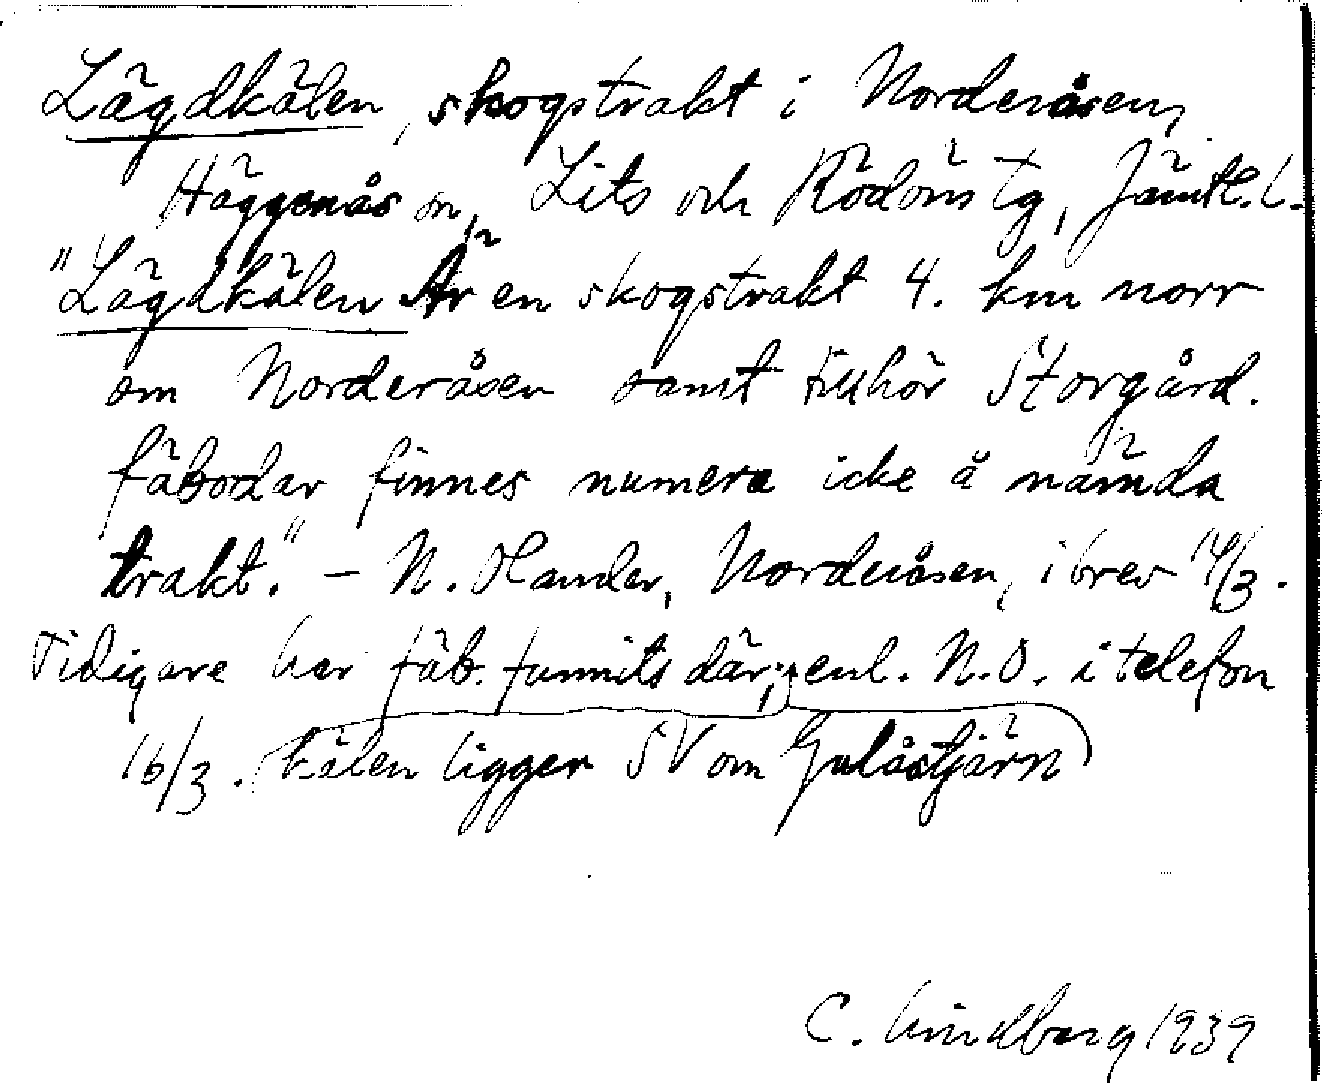 Lägdkälen, skogstrakt i Norderåsen,
Häggenås sn, Lits och Rödöns tg, Jämtl. l.
"Lägdkälen Är en skogstrakt 4. km norr
om Norderåsen samt tillhör Storgård.
fäbodar finnes numera icke å nämda
trakt." – N. Olander, Norderåsen, i brev 14/3.
Tidigare har fäb. funnits där, enl. N.O. i telefon
16/3. kälen ligger SV om Gulåstjärn
C. Lindberg 1939